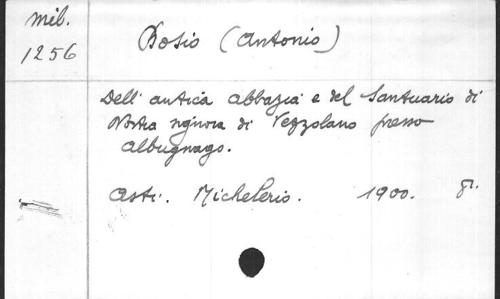 Mil.
1256
Bosio (Antonio)
Dell' antica abbazia e del Santuario di
Nostra signora di Vezzolano presso
Albugnago.
Asti. Michelerio. 1900. gr.